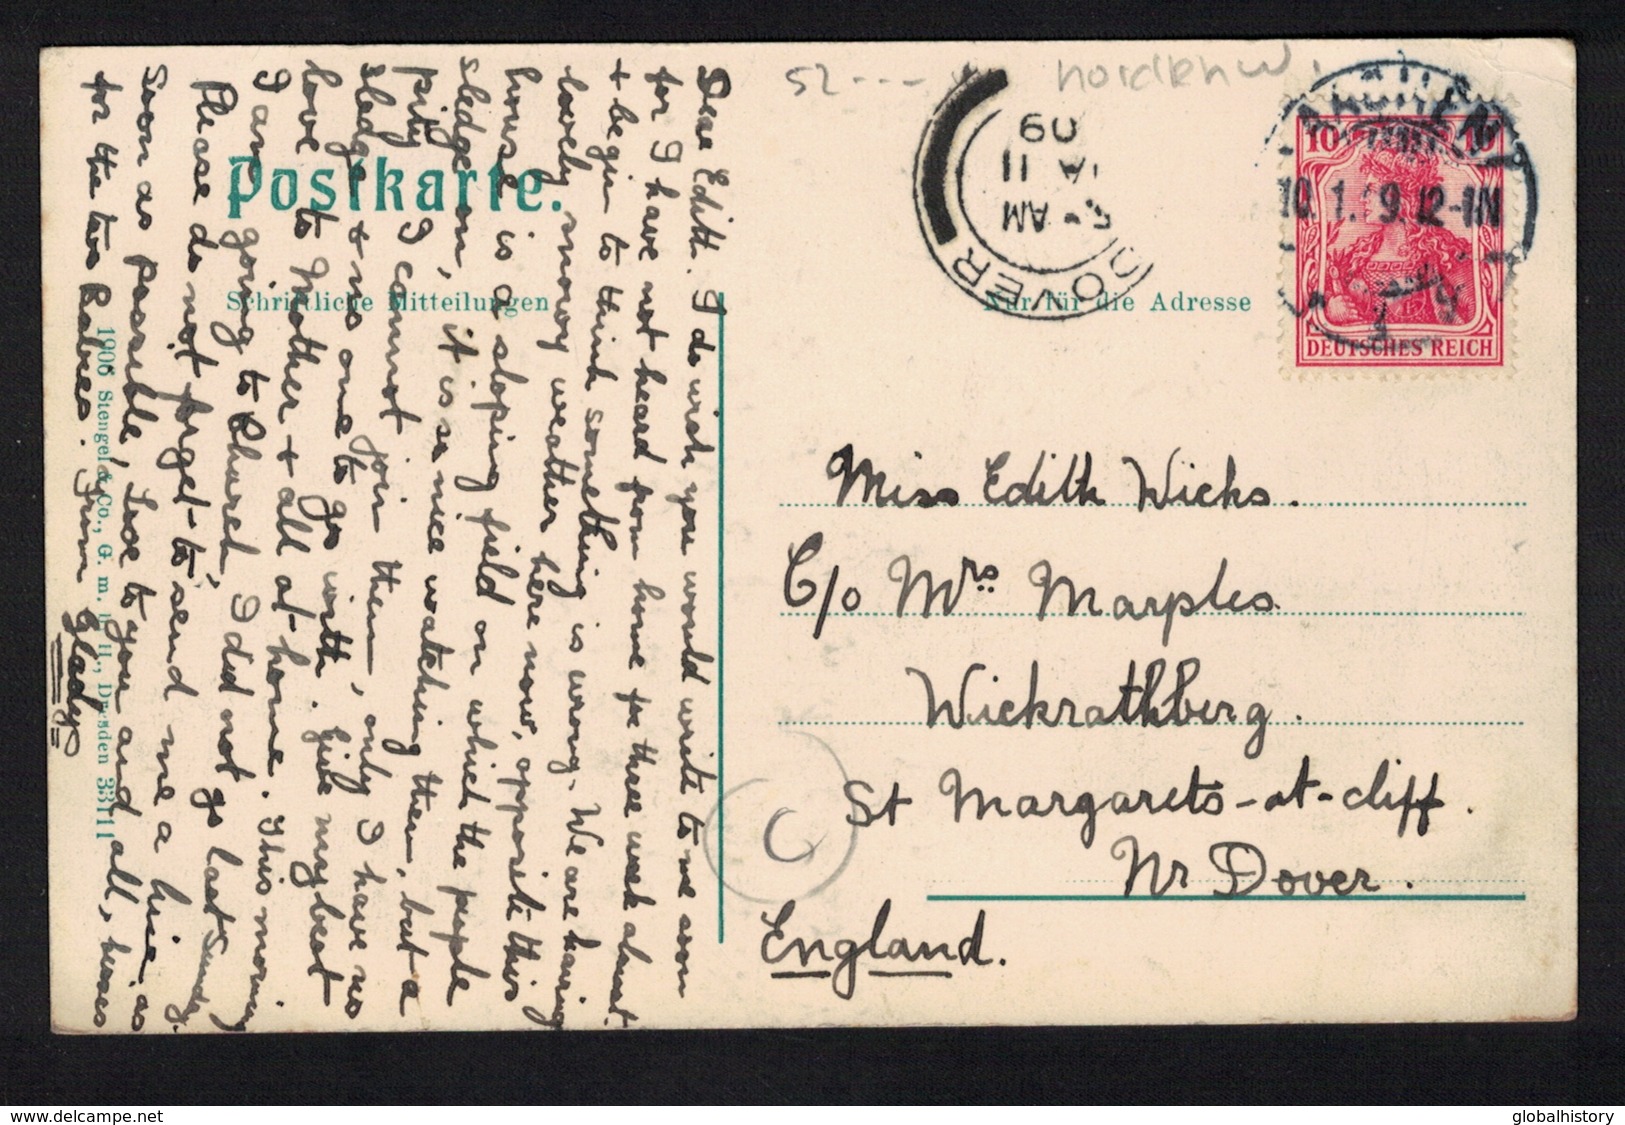 52---
nordrhnw.
Postkarte.
Schriftliche Mitteilungen
Nur für die Adresse
DOVER
AM
JA 11
09
AACHEN
10.1.09.12-1N
10 10
DEUTSCHES REICH
Dear Edith. I do wish you would write to me soon
for I have not heard from home for three week almost.
& begin to think something is wrong. We are having
lovely snowy weather here now, opposite this
house is a sloping field on which the people
sledge on, it is so nice watching them, but a
pity I cannot join them, only I have no
sledge & no one to go with. Give my best
love to Mother & all at home. This morning
I am going to Church, I did not go last Sunday.
Please do not forget to send me a line as
soon as possible, Love to you and all, kisses
for the two Babies. From Gladys
1906 Stengel & Co., G. m. b. H., Dresden 33711
Miss Edith Wicks.
C/o Mrs Marples
Wickrathberg.
St Margarets-at-cliff.
Nr Dover.
England.
globalhistory